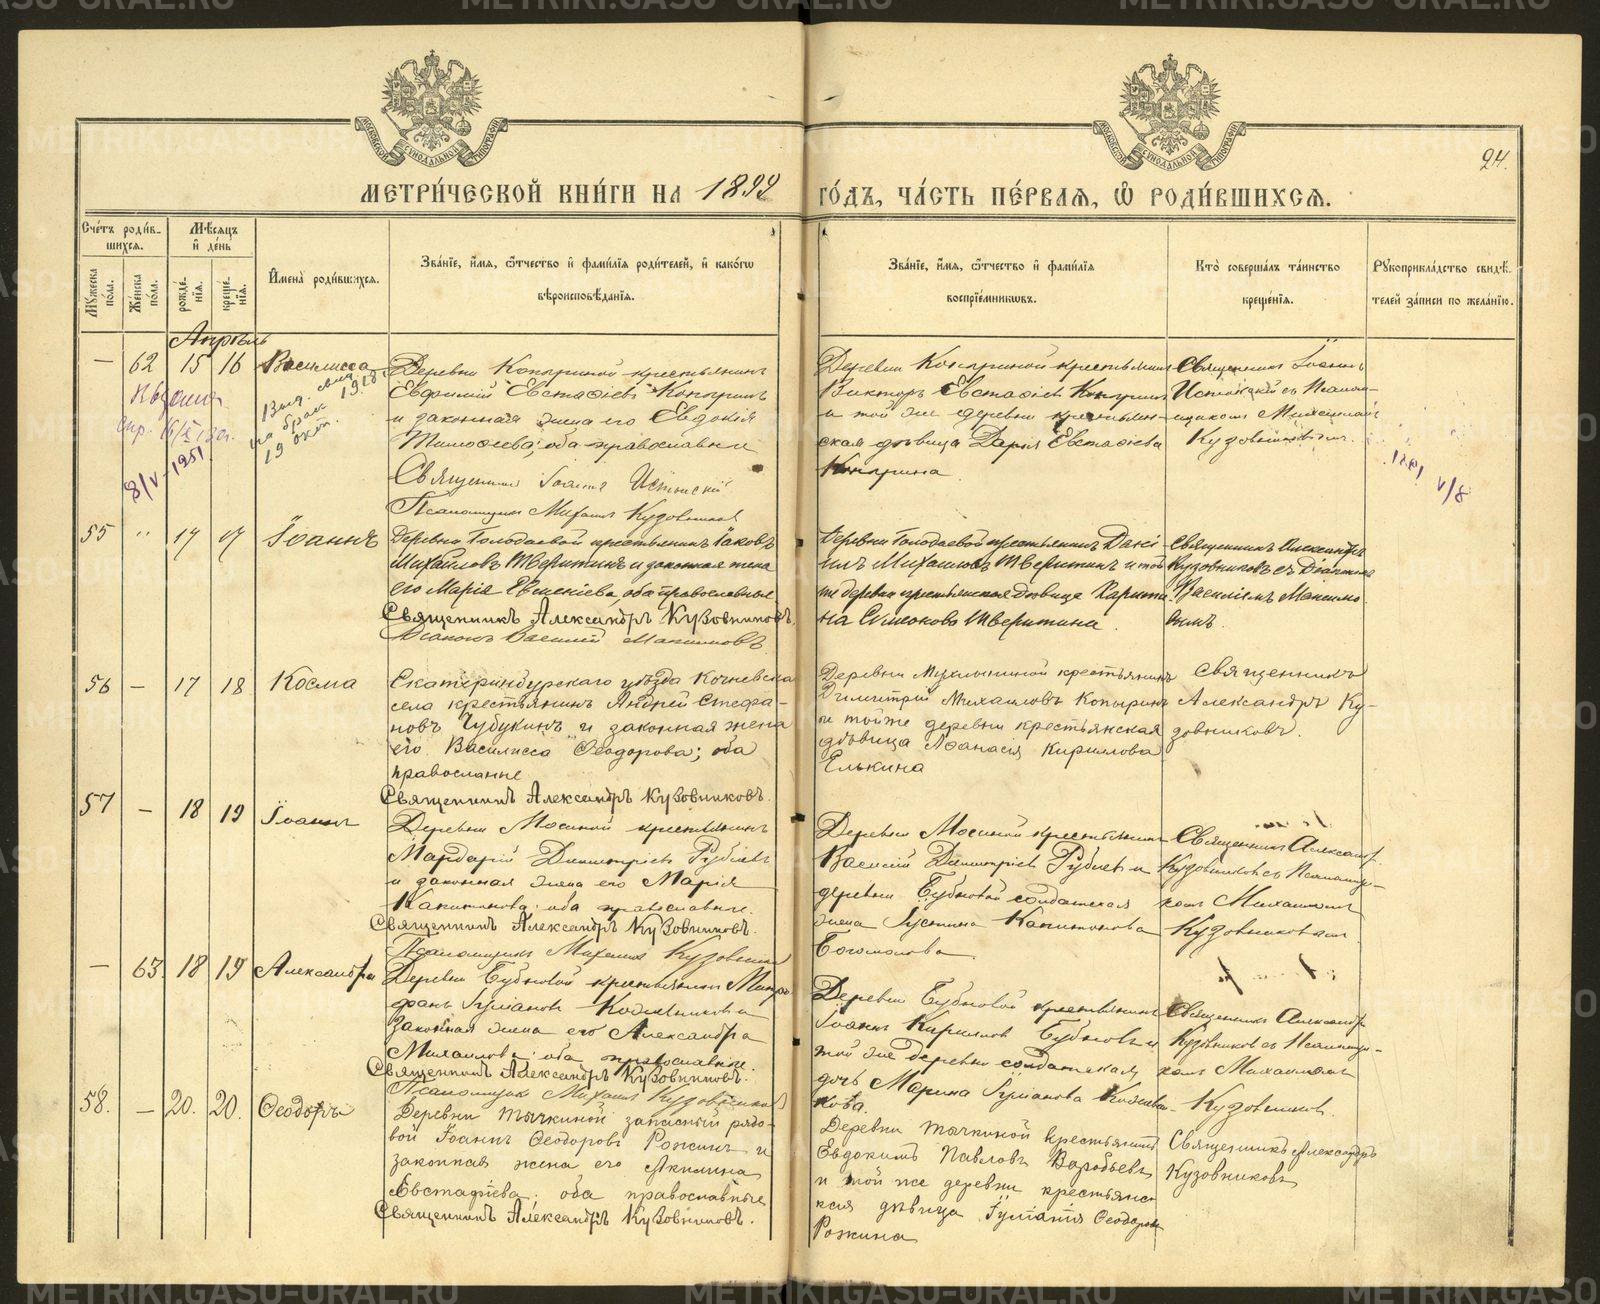 МЕТРИ́ЧЕСКОЙ КНИ́ГИ НА 1899 ГО́ДЪ, ЧА́СТЬ ПЕ́РВАѦ, Ѽ РОДИ́ВШИХСѦ.
24.
Сче́тъ роди́в-
шихся.
Мѣ́сяцъ
и҆ де́нь
Мꙋжеска по́ла.
Же́нска по́ла.
рожде́-
нїѧ.
креще́-
нїѧ.
И҆мена̀ роди́вшихся.
Зва́нїе, и҆́мя, ѻ҆́тчество и҆ фами́лїя роди́телей, и҆ како́гѡ
вѣроисповѣ́данїя.
Зва́нїе, и҆́мя, ѻ҆́тчество и҆ фами́лїя
воспрїе́мникѡвъ.
Кто̀ соверша́лъ та́инство
креще́нїя.
Рꙋкоприкла́дство свидѣ́-
телей за́писи по жела́нїю.
Апрѣль
— 62 15 16 Василисса
Деревни Копыриной крестьянинъ
Евфимій Евстафіевъ Копыринъ
и законная жена его Евдокія
Тимофеева; оба православные
Священникъ Іоаннъ Истокскій
Псаломщикъ Михаилъ Кузовниковъ
Деревни Копыриной крестьянинъ
Викторъ Евстафіевъ Копыринъ
и той же деревни крестьян-
ская дѣвица Дарья Евстафіева
Копырина
Священникъ Іоаннъ
Истокскій съ Псалом-
щикомъ Михаиломъ
Кузовниковымъ.
8/V-1951
55 " 17 17 Іоаннъ
Деревни Голодаевой крестьянинъ Іаковъ
Михайловъ Тверитинъ и законная жена
его Марія Евгеніева, оба православные
Священникъ Александръ Кузовниковъ.
Діаконъ Василій Максимовъ
Деревни Голодаевой крестьянинъ Дані-
илъ Михаиловъ Тверитинъ и той
же деревни крестьянская дѣвица Харити-
на Симеонова Тверитина.
Священникъ Александръ
Кузовниковъ съ Діакономъ
Василіемъ Максимо-
вымъ.
56 — 17 18 Косма
Екатеринбургскаго уѣзда Кочневска
села крестьянинъ Андрей Стефа-
новъ Чубукинъ и законная жена
его Василисса Ѳеодорова; оба
православные
Священникъ Александръ Кузовниковъ.
Димитрій Михаиловъ Копыринъ
и тойже деревни крестьянская
дѣвица Аѳанасія Кириллова
Елькина
Священникъ
Александръ Ку-
зовниковъ.
57 — 18 19 Іоаннъ
Деревни Мосиной крестьянинъ
Мардарій Димитріевъ Рублевъ
и законная жена его Марія
Капитонова; оба православные.
Священникъ Александръ Кузовниковъ.
Псаломщикъ Михаилъ Кузовниковъ
Деревни Мосиной крестьянинъ
Василій Димитріевъ Рублевъ и
деревни Бубновой солдатская
жена Іустина Капитонова
Богомолова
Священникъ Александръ
Кузовниковъ съ Псаломщи-
комъ Михаиломъ
Кузовниковымъ
— 63. 18 19 Александра
Деревни Бубновой крестьянинъ Митро-
фанъ Іуліановъ Кожевниковъ и
законная жена его Александра
Михаилова; оба православные.
Священникъ Александръ Кузовниковъ.
Псаломщикъ Михаилъ Кузовниковъ
Деревни Бубновой крестьянинъ
Іоаннъ Кириловъ Бубновъ и
той же деревни солдатская
дочь Марина Іуліанова Кожевни-
кова.
Священникъ Александръ
Кузовниковъ съ Псаломщи-
комъ Михаиломъ
Кузовниковъ.
58. — 20. 20. Ѳеодоръ
Деревни Тычкиной запасный рядо-
вой Іоаннъ Ѳеодоровъ Рожинъ и
законная жена его Акилина
Евстафіева; оба православные
Священникъ Александръ Кузовниковъ.
Деревни Тычкиной крестьянинъ
Евдокимъ Павловъ Воробьевъ
и той же деревни крестьянс-
кая дѣвица Іуліанія Ѳеодорова
Рожина
Священникъ Александръ
Кузовниковъ
METRIKI.GASO-URAL.RU